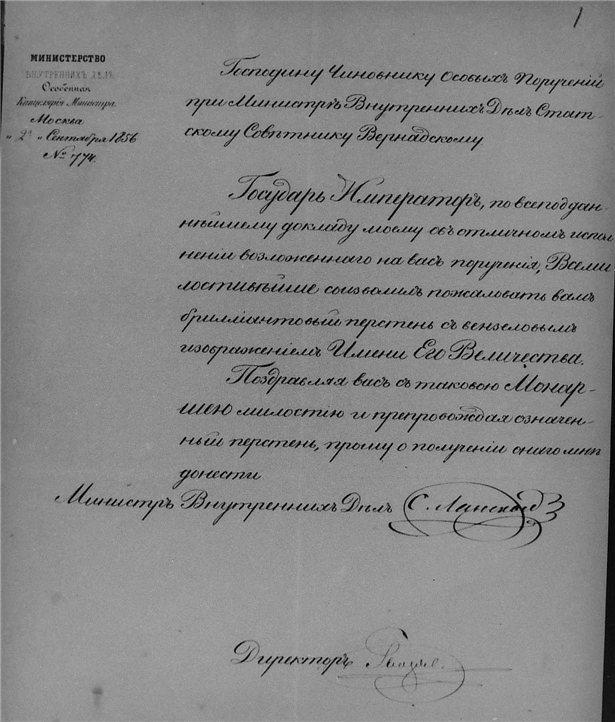 1
МИНИСТЕРСТВО
ВНУТРЕННИХЪ ДѢЛЪ
Особенная
Канцелярія Министра.
Москва
„2" Сентября 1856
№ 774.
Господину Чиновнику Особыхъ Порученій
при Министрѣ Внутреннихъ Дѣлъ Стат-
скому Совѣтнику Вернадскому
Государь Императоръ, по всеподдан-
нѣйшему докладу моему объ отличномъ испол
неніи возложеннаго на васъ порученія, Всеми
лостивѣйше соизволилъ пожаловать вамъ
брилліантовый перстень съ вензеловымъ
изображеніемъ Имени Его Величества.
Поздравляя васъ съ таковою Монар-
шею милостію и препровождая означен-
ный перстень, прошу о полученіи онаго мнѣ
донести
Министръ Внутреннихъ Дѣлъ С. Ланской
Директоръ